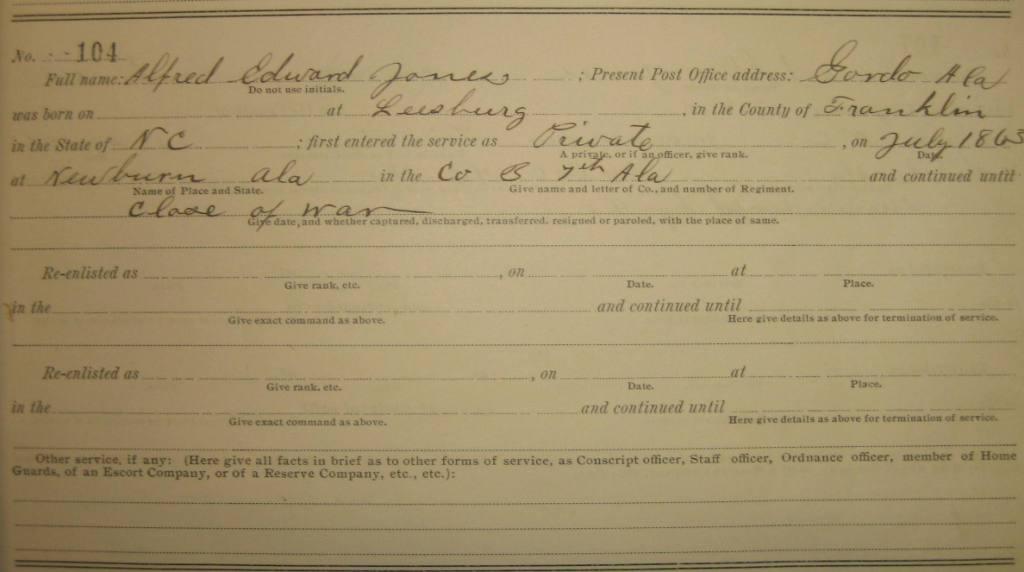 No. 104
Full name: Alfred Edward Jones ; Present Post Office address: Gordo Ala
Do not use initials.
was born on at Leesburg , in the County of Franklin
in the State of N C ; first entered the service as Private , on July 1863
A private, or if an officer, give rank. Date.
at Newburn Ala in the Co B 7th Ala and continued until
Name of Place and State. Give name and letter of Co., and number of Regiment.
Close of war
Give date, and whether captured, discharged, transferred, resigned or paroled, with the place of same.
Re-enlisted as , on at
Give rank, etc. Date. Place.
in the and continued until
Give exact command as above. Here give details as above for termination of service.
Re-enlisted as , on at
Give rank, etc. Date. Place.
in the and continued until
Give exact command as above. Here give details as above for termination of service.
Other service, if any: (Here give all facts in brief as to other forms of service, as Conscript officer, Staff officer, Ordnance officer, member of Home
Guards, of an Escort Company, or of a Reserve Company, etc., etc.):